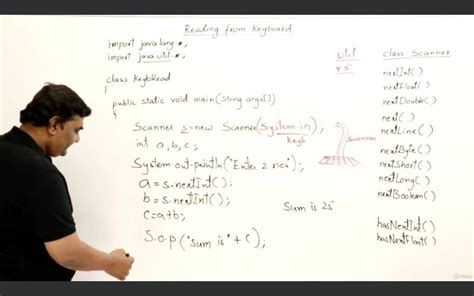 Reading from Keyboard
import java.lang.*;
import java.util.*;
class KeybRead
{
public static void main(String args[])
{
Scanner s=new Scanner(System.in);
Keyb
int a,b,c;
System.out.println("Enter 2 nos");
a=s.nextInt();
b=s.nextInt();
c=a+b;
S.o.p("Sum is"+c);
Sum is 25
util
Scanner
class Scanner
nextInt()
nextFloat()
nextDouble()
next()
nextLine()
nextByte()
nextShort()
nextLong()
nextBoolean()
hasNextInt()
hasNextFloat()